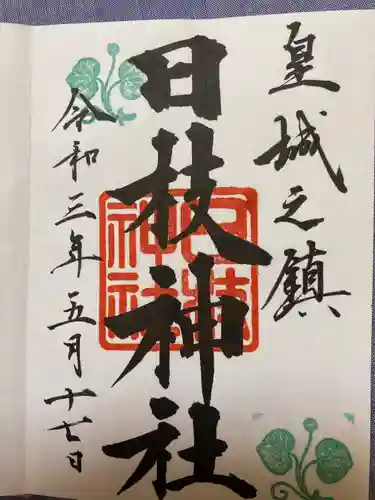 皇城之鎮
日枝神社
令和三年五月十七日
日枝
神社